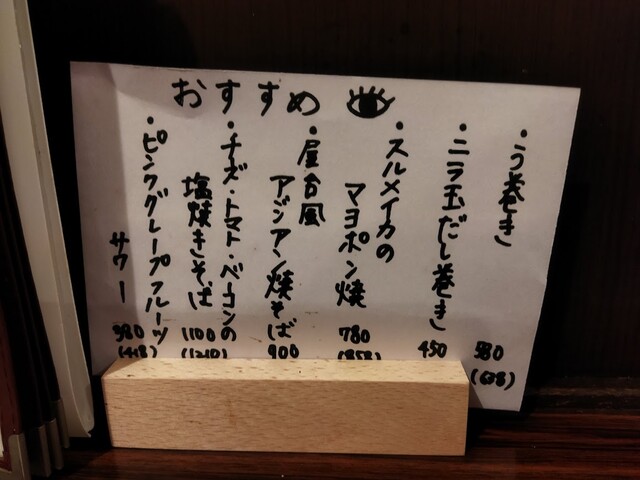 おすすめ
・う巻き
580
(638)
・ニラ玉だし巻き
450
・スルメイカの
マヨポン焼
780
(858)
・屋台風
アジアン焼そば
900
・チーズ・トマト・ベーコンの
塩焼きそば
1100
(1210)
・ピンクグレープフルーツ
サワー
380
(418)